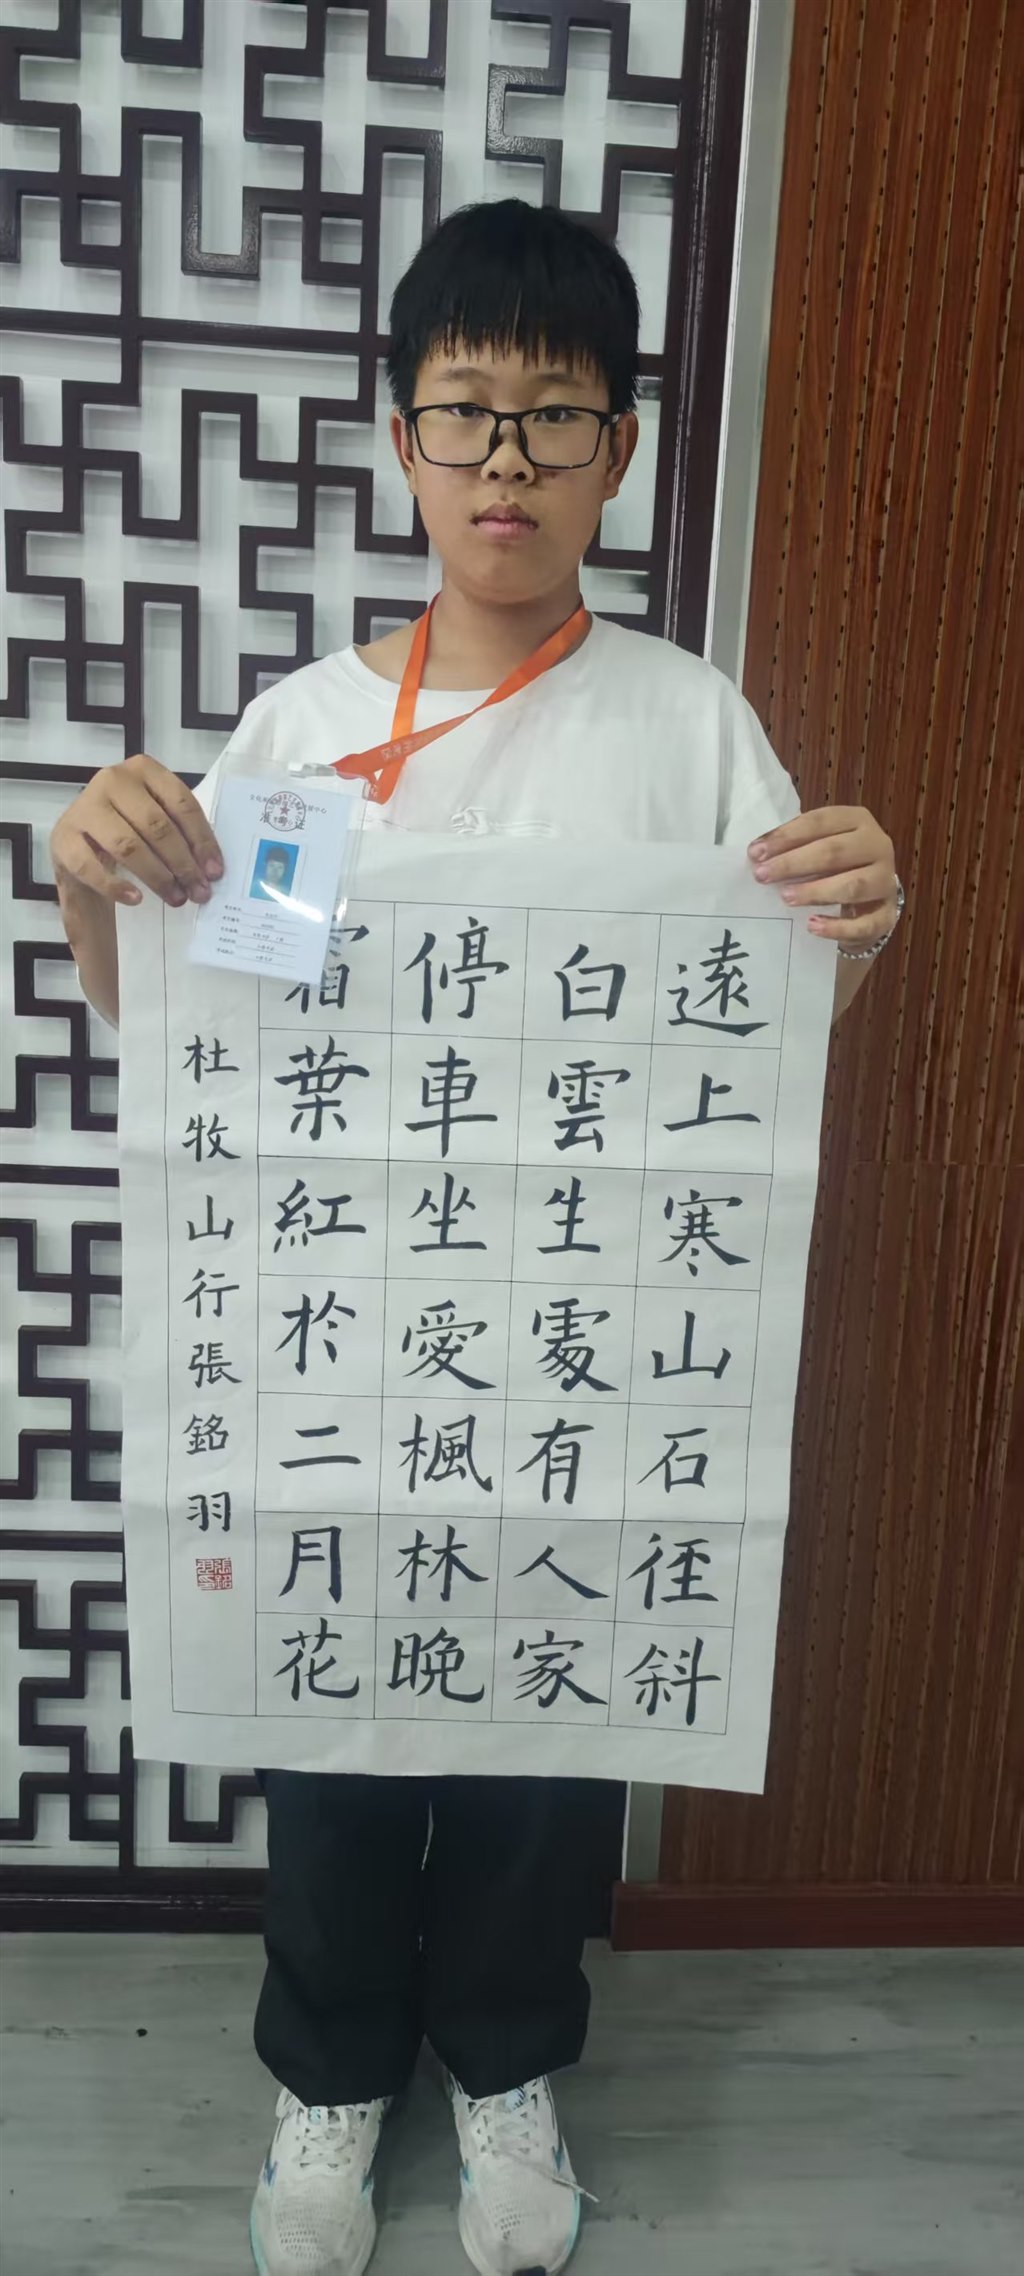 遠上寒山石徑斜
白雲生處有人家
停車坐愛楓林晚
霜葉紅於二月花
杜牧山行張銘羽
准 证